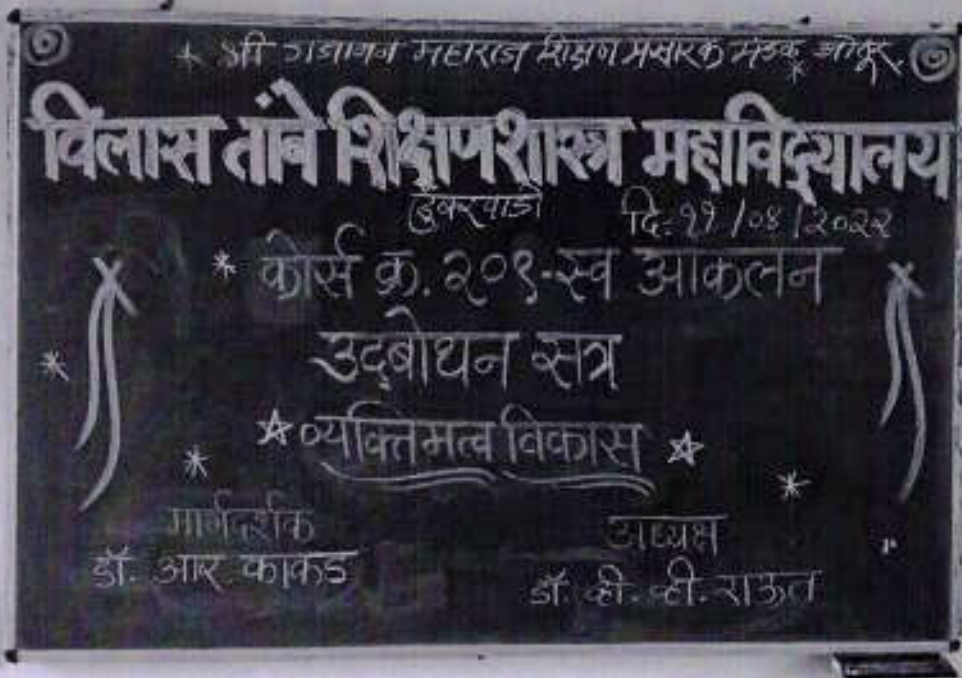 * श्री गजानन महाराज शिक्षण प्रसारक मंडळ ओतूर *
विलास तांबे शिक्षणशास्त्र महाविद्यालय
डुंबरवाडी
दि:-११/०४/२०२२
* कोर्स क्र. २०९-स्व आकलन
उद्‌बोधन सत्र
☆ व्यक्तिमत्व विकास ☆
मार्गदर्शक
डॉ. आर. काकडे
अध्यक्ष
डॉ. व्ही. व्ही. राऊत